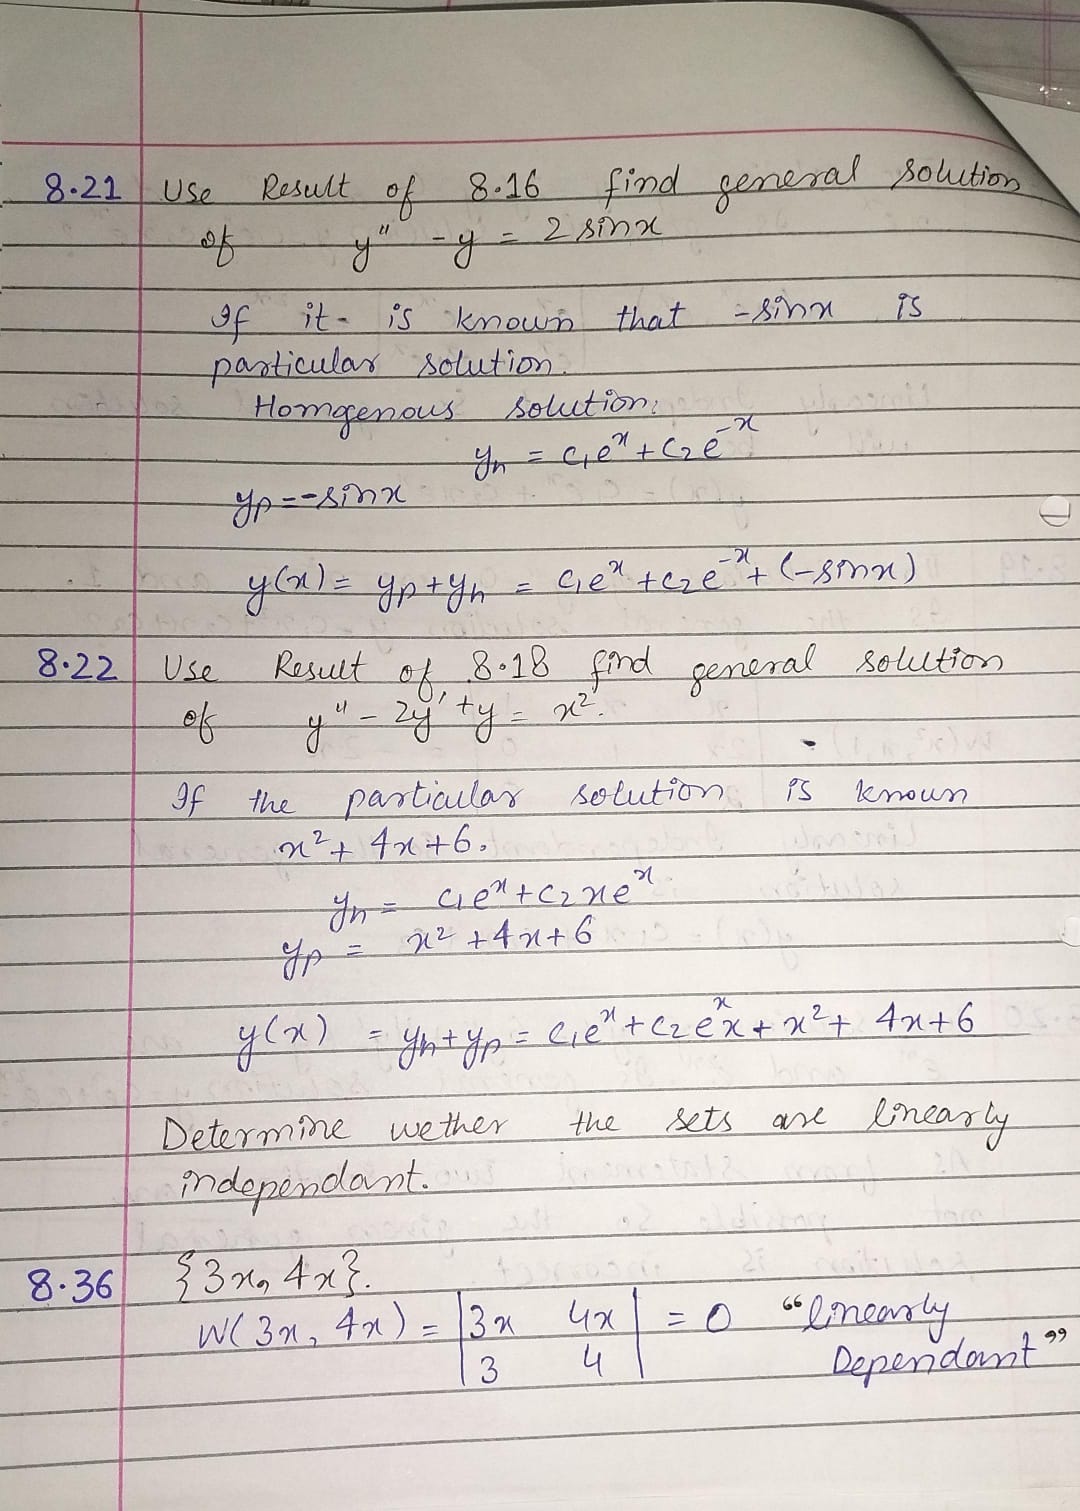 8.21 Use Result of 8.16 find general solution
of y'' - y = 2 sinx
If it is known that -sinx is
particular solution.
Homgenous solution:
yh = c1e^x + c2e^-x
yp = -sinx
y(x) = yp + yh = c1e^x + c2e^-x + (-sinx)
8.22 Use Result of 8.18 find general solution
of y'' - 2y' + y = x².
If the particular solution is known
x² + 4x + 6.
yh = c1e^x + c2xe^x
yp = x² + 4x + 6
y(x) = yh + yp = c1e^x + c2e^x x + x² + 4x + 6
Determine wether the sets are linearly
independant.
8.36 {3x, 4x}.
W(3x, 4x) = |3x 4x| = 0 "linearly
|3 4| Dependant"